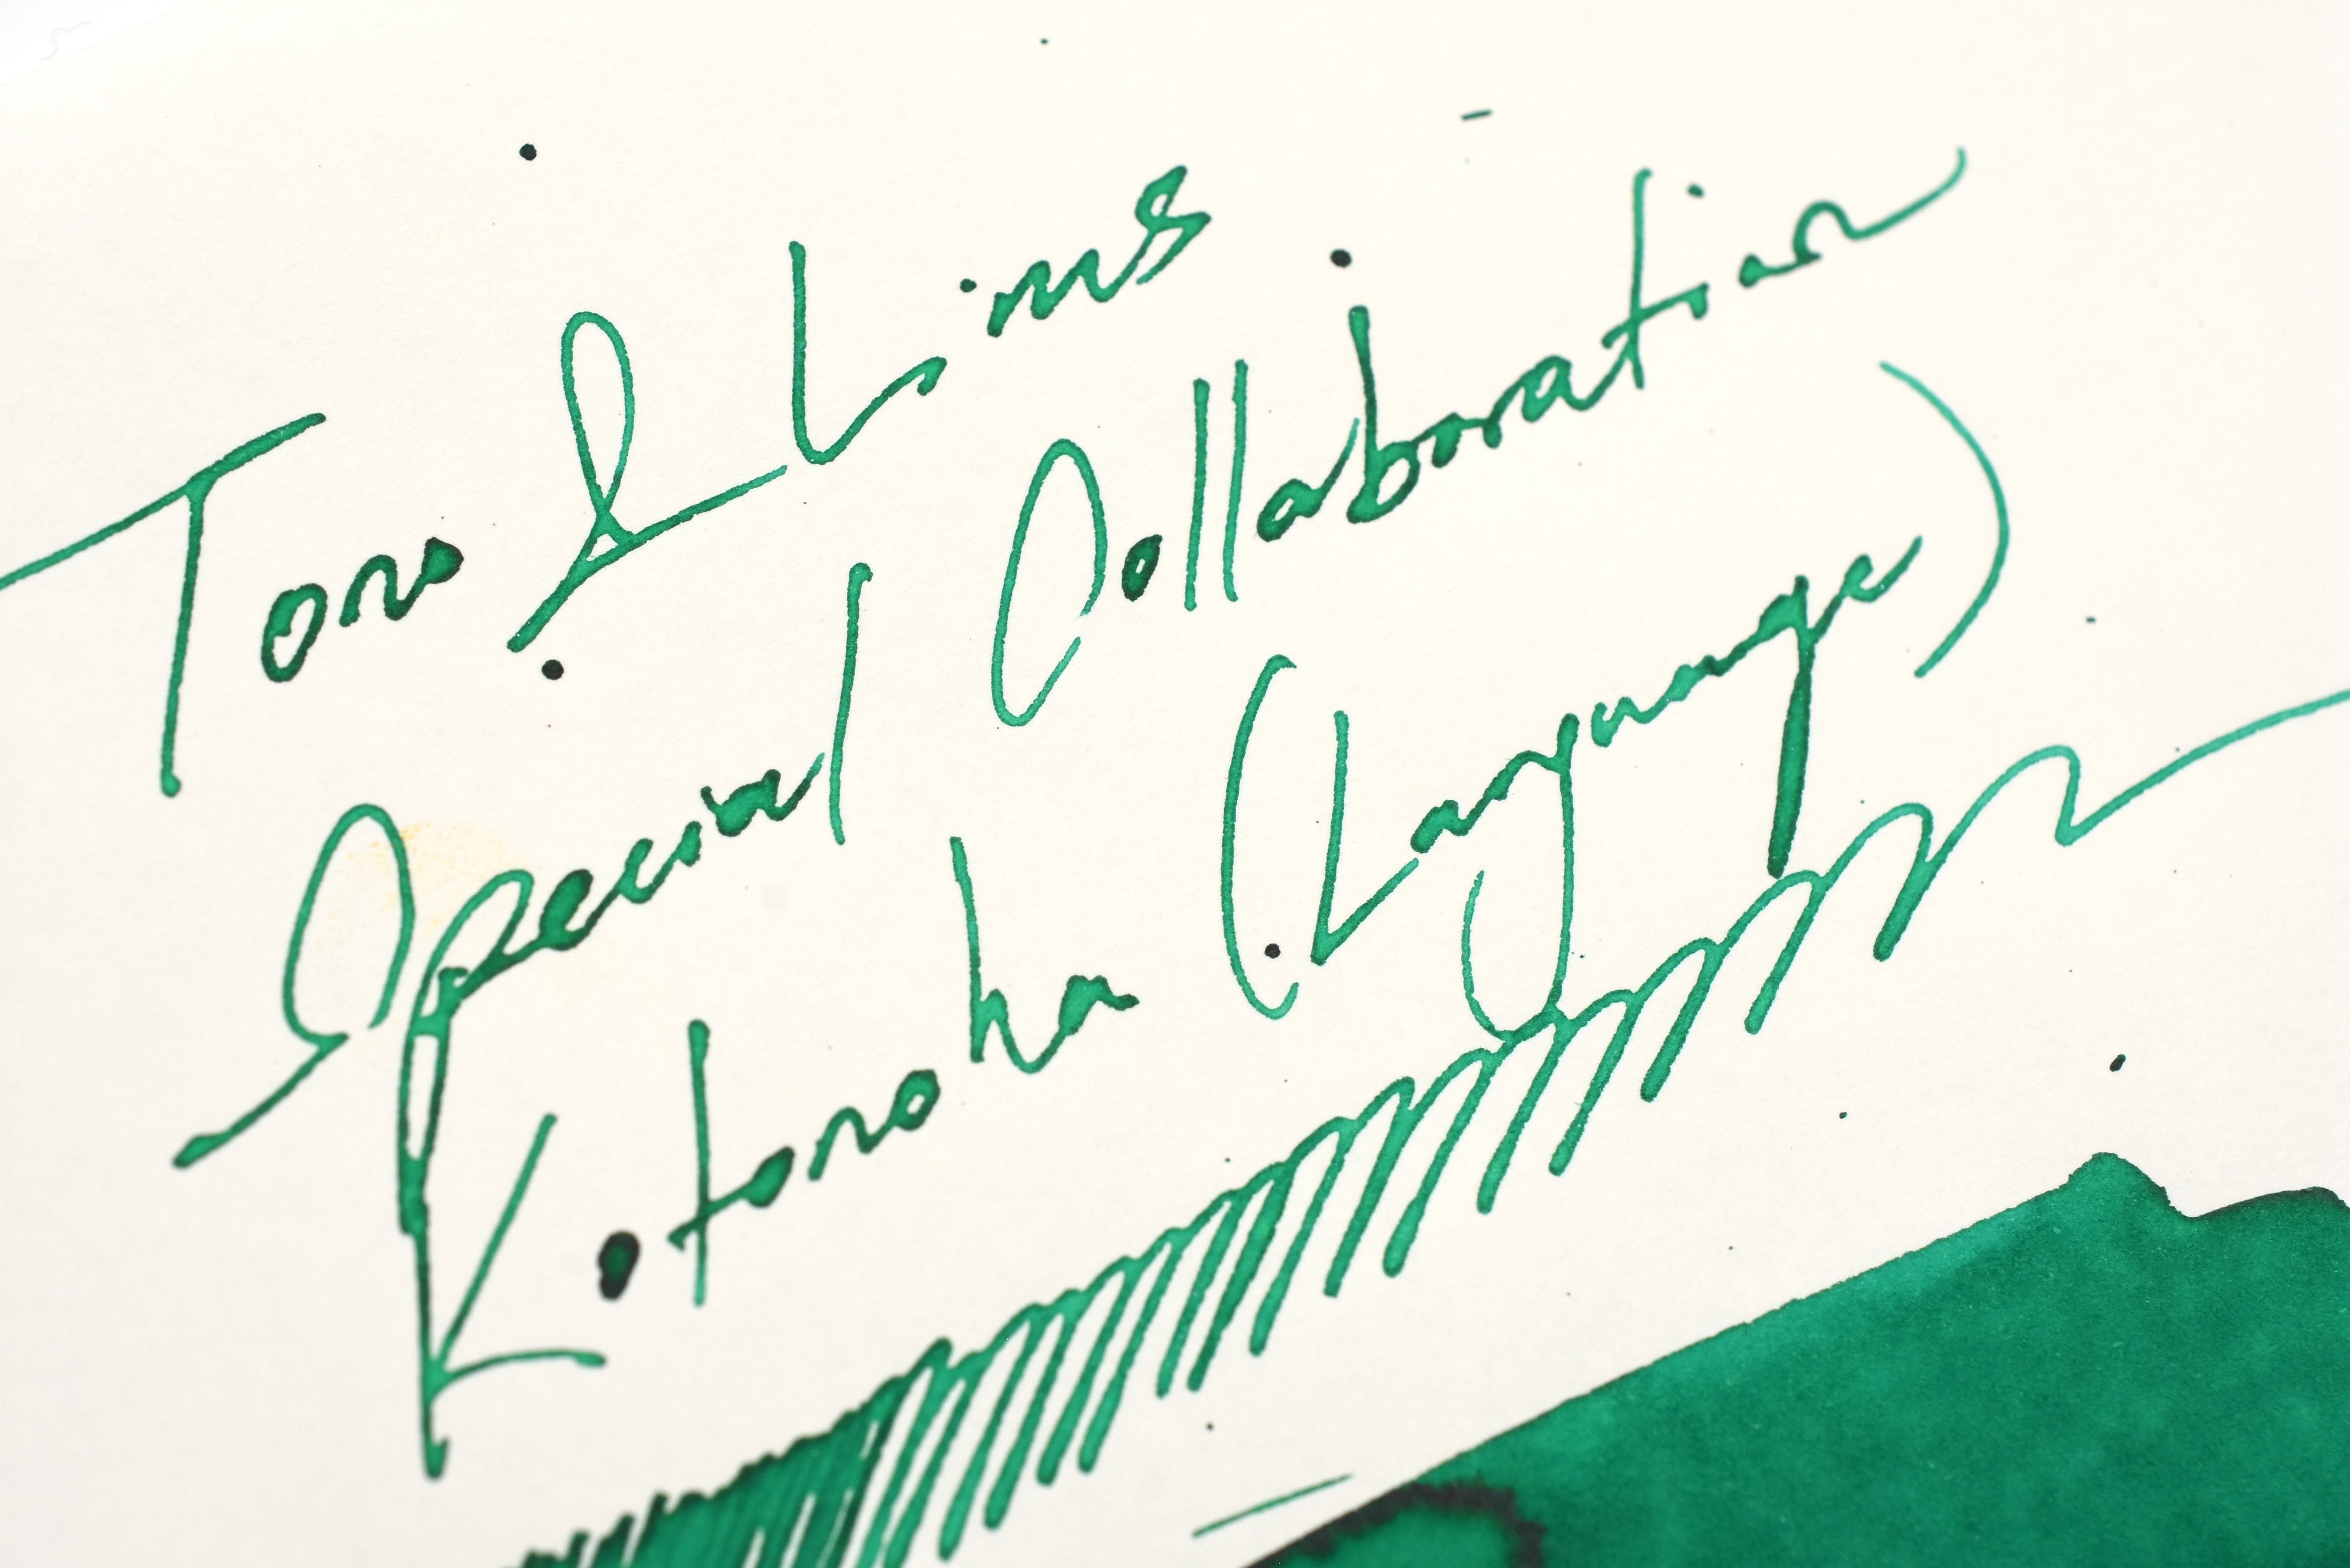 Tono & Lims
Special Collaboration
Kotonoha (Language)